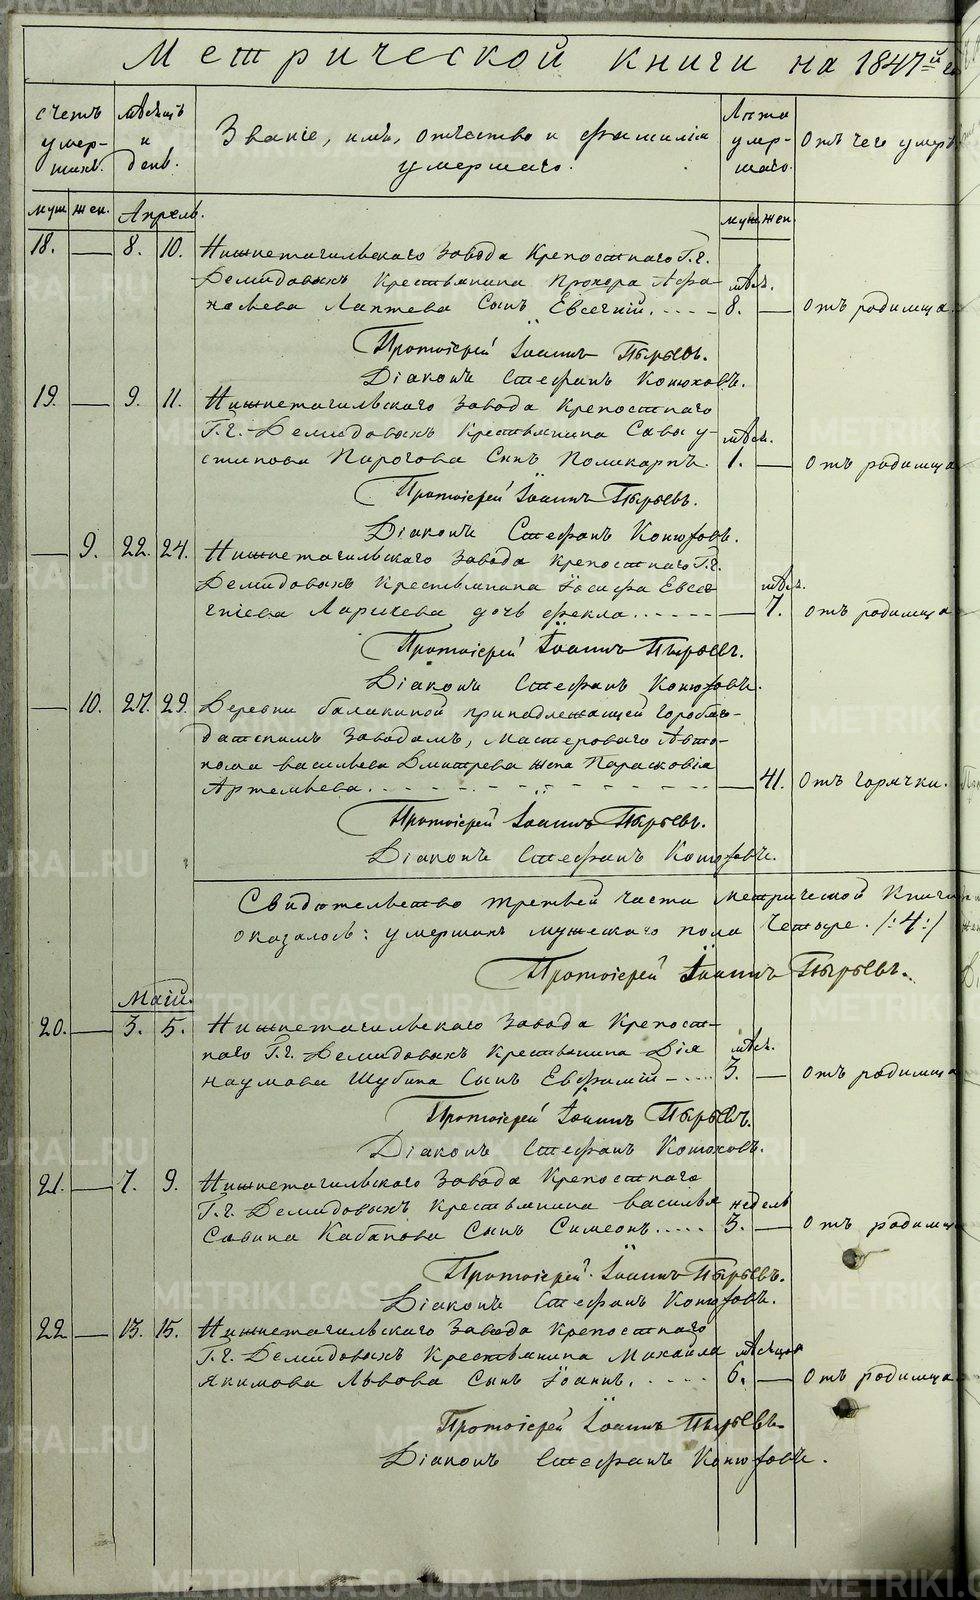 Метрической книги на 1847й
счетъ умер-шихъ.
мѣсяцъ и день.
Званіе, имя, отчество и фамилія умершаго.
Лѣта умер-шаго.
Отъ чего умеръ
муж. жен. Апрель. муж. жен.
18. — 8. 10. Нижнетагильскаго Завода Крепостнаго Г.г.
Демидовыхъ Крестьянина Прохора Афа- мѣся.
насьева Лаптева Сынъ Евсегній. 8. — Отъ родимца.
Протоіерей Іоаннъ Пырьевъ.
Діаконъ Стефанъ Конюховъ.
19. — 9. 11. Нижнетагильскаго Завода Крепостнаго
Г.г. Демидовыхъ Крестьянина Савы у- мѣся.
стинова Пирогова Сынъ Поликарпъ. 1. — Отъ родимца
Протоіерей Іоаннъ Пырьевъ.
Діаконъ Стефанъ Конюховъ.
— 9. 22. 24. Нижнетагильскаго Завода Крепостнаго Г.г.
Демидовыхъ Крестьянина Іосифа Евсе- мѣся.
гніева Ларіхева дочь Фекла. — 7. Отъ родимца
Протоіерей Іоаннъ Пырьевъ.
Діаконъ Стефанъ Конюховъ.
— 10. 27. 29. Деревни балакиной принадлежащей Горобла-
датскимъ Заводамъ, Мастероваго Авто-
нома васильева Дмитрева жена Парасковія
Артемьева. — 41. Отъ горячки.
Протоіерей Іоаннъ Пырьевъ.
Діаконъ Стефанъ Конюховъ.
Свидѣтельство третьей части метрической Книги
оказалось: умершихъ мужескаго пола Четыре. /:4:/
Протоіерей Іоаннъ Пырьевъ.
Маій.
20. — 3. 5. Нижнетагильскаго Завода Крепост-
наго Г.г. Демидовыхъ Крестьянина Дія мѣся.
наумова Шубина Сынъ Евфимій 3. — Отъ родимца
Протоіерей Іоаннъ Пырьевъ.
Діаконъ Стефанъ Конюховъ.
21. — 7. 9. Нижнетагильскаго Завода Крепостнаго
Г.г. Демидовыхъ Крестьянина василья недель
Савина Кабанова Сынъ Симеонъ. 3. — Отъ родимца
Протоіерей Іоаннъ Пырьевъ.
Діаконъ Стефанъ Конюховъ.
22 — 13. 15. Нижнетагильскаго Завода Крепостнаго
Г.г. Демидовыхъ Крестьянина Михайла мѣсяцов
якимова Львова Сынъ Іоаннъ. 6. — Отъ родимца
Протоіерей Іоаннъ Пырьевъ
Діаконъ Стефанъ Конюховъ.
METRIKI.GASO-URAL.RU